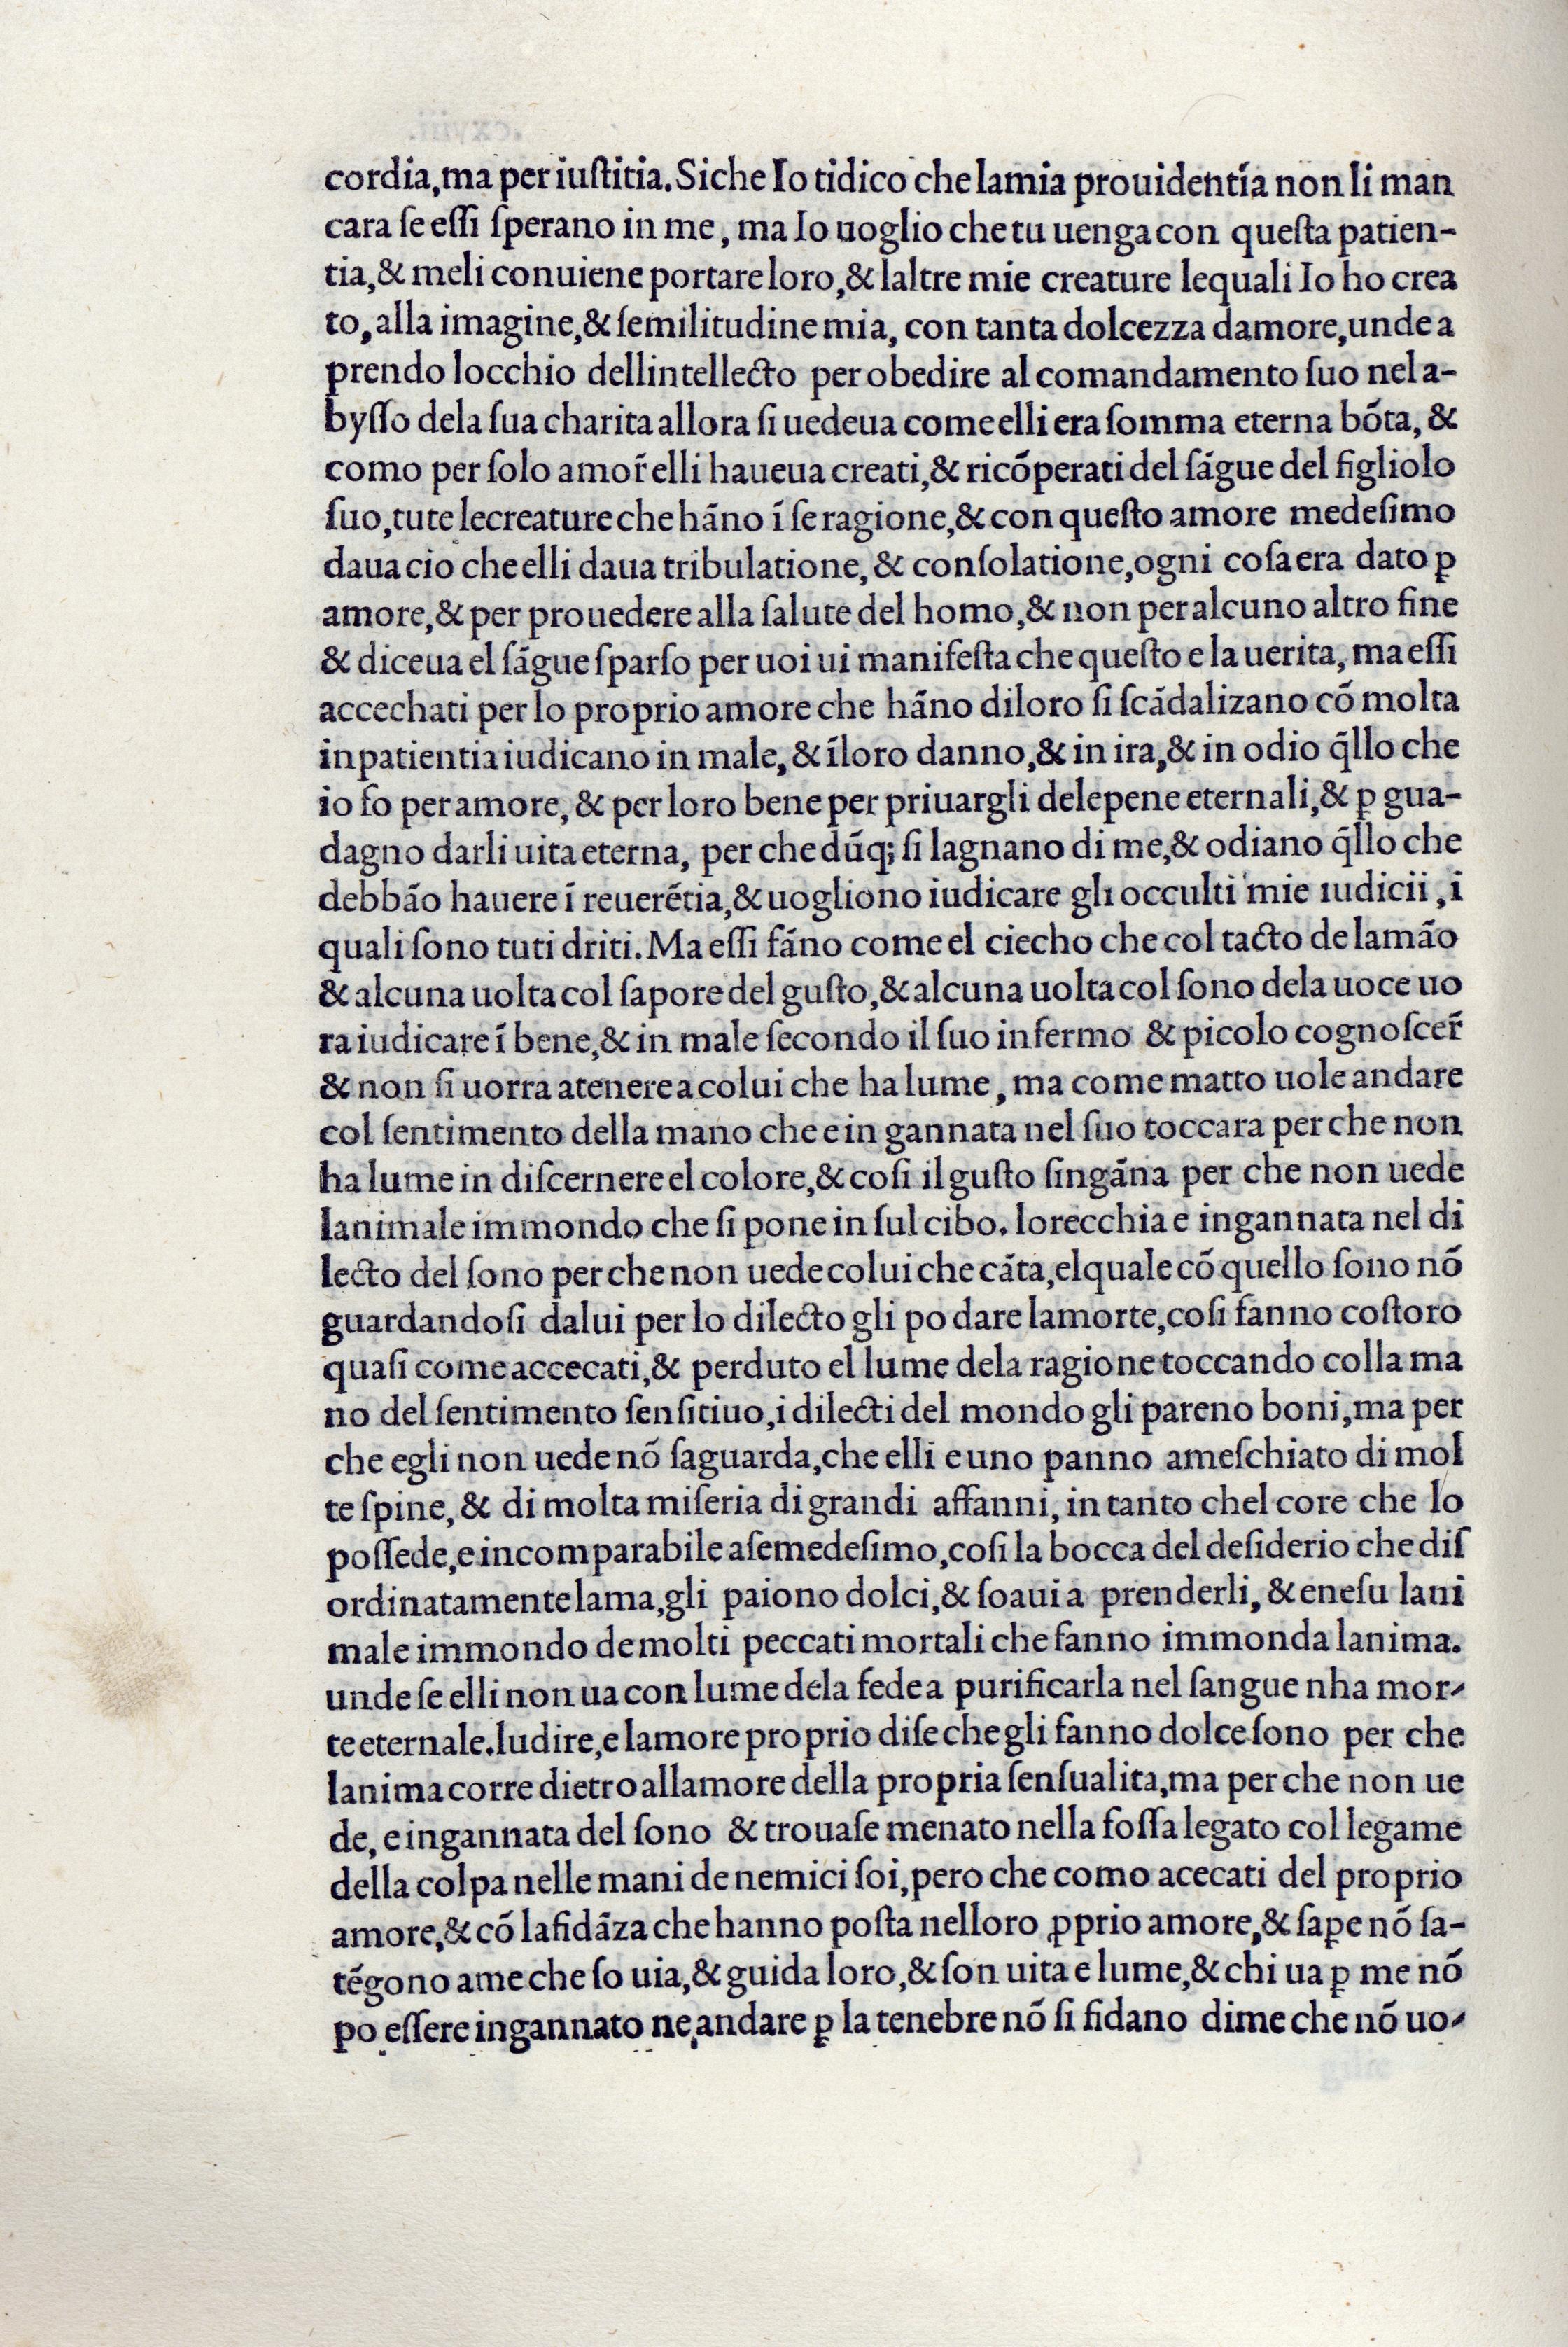 cordia,ma per iuſtitia.Siche Io tidico che lamia prouidentĩa non li man
cara ſe eſſi ſperano in me, ma Io uoglio che tu uenga con queſta patien-
tia,& meli conuiene portare loro,& laltre mie creature lequali Io ho crea
to, alla imagine,& ſemilitudine mia, con tanta dolcezza damore,unde a
prendo locchio dellintellecto per obedire al comandamento ſuo nel a-
byſſo dela ſua charita allora ſi uedeua come elli era ſomma eterna bõta, &
como per ſolo amor̃ elli haueua creati,& ricõperati del ſãgue del figliolo
ſuo,tute lecreature che hãno ĩ ſe ragione,& con queſto amore medeſimo
daua cio che elli daua tribulatione, & conſolatione,ogni coſa era dato ꝑ
amore,& per prouedere alla ſalute del homo,& non per alcuno altro fine
& diceua el ſãgue ſparſo per uoi ui manifeſta che queſto e la uerita, ma eſſi
accechati per lo proprio amore che hãno diloro ſi ſcãdalizano cõ molta
inpatientia iudicano in male, & ĩloro danno,& in ira,& in odio q̃llo che
io fo per amore, & per loro bene per priuargli delepene eternali,& ꝑ gua-
dagno darli uita eterna, per che dũq; ſi lagnano di me,& odiano q̃llo che
debbão hauere ĩ reuerẽtia,& uogliono iudicare gli occulti mie iudicii , i
quali ſono tuti driti. Ma eſſi fãno come el ciecho che col tacto de lamão
& alcuna uolta col ſapore del guſto,& alcuna uolta col ſono dela uoce uo
ra iudicare ĩ bene,& in male ſecondo il ſuo infermo & picolo cognoſcer̃
& non ſi uorra atenere a colui che ha lume , ma come matto uole andare
col ſentimento della mano che e in gannata nel ſuo toccara per che non
ha lume in diſcernere el colore,& coſi il guſto ſingãna per che non uede
lanimale immondo che ſi pone in ſul cibo. lorecchia e ingannata nel di
lecto del ſono per che non uede colui che cãta,elquale cõ quello ſono nõ
guardandoſi dalui per lo dilecto gli po dare lamorte,coſi fanno coſtoro
quaſi come accecati,& perduto el lume dela ragione toccando colla ma
no del ſentimento ſenſitiuo,i dilecti del mondo gli pareno boni,ma per
che egli non uede nõ ſaguarda,che elli e uno panno ameſchiato di mol
te ſpine, & di molta miſeria di grandi affanni, in tanto chel core che lo
poſſede,e incomparabile aſemedeſimo,coſi la bocca del deſiderio che diſ
ordinatamente lama,gli paiono dolci,& ſoaui a prenderli, & eneſu lani
male immondo de molti peccati mortali che fanno immonda lanima.
unde ſe elli non ua con lume dela fede a purificarla nel ſangue nha mor-
te eternale.ludire,e lamore proprio diſe che gli fanno dolce ſono per che
lanima corre dietro allamore della propria ſenſualita,ma per che non ue
de, e ingannata del ſono & trouaſe menato nella foſſa legato col legame
della colpa nelle mani de nemici ſoi,pero che como acecati del proprio
amore,& cõ lafidãza che hanno poſta nelloro ꝓprio amore,& ſaꝑe nõ ſa-
tẽgono ame che ſo uia,& guida loro,& ſon uita e lume,& chi ua ꝑ me nõ
po eſſere ingannato ne andare ꝑ la tenebre nõ ſi fidano dime che nõ uo-